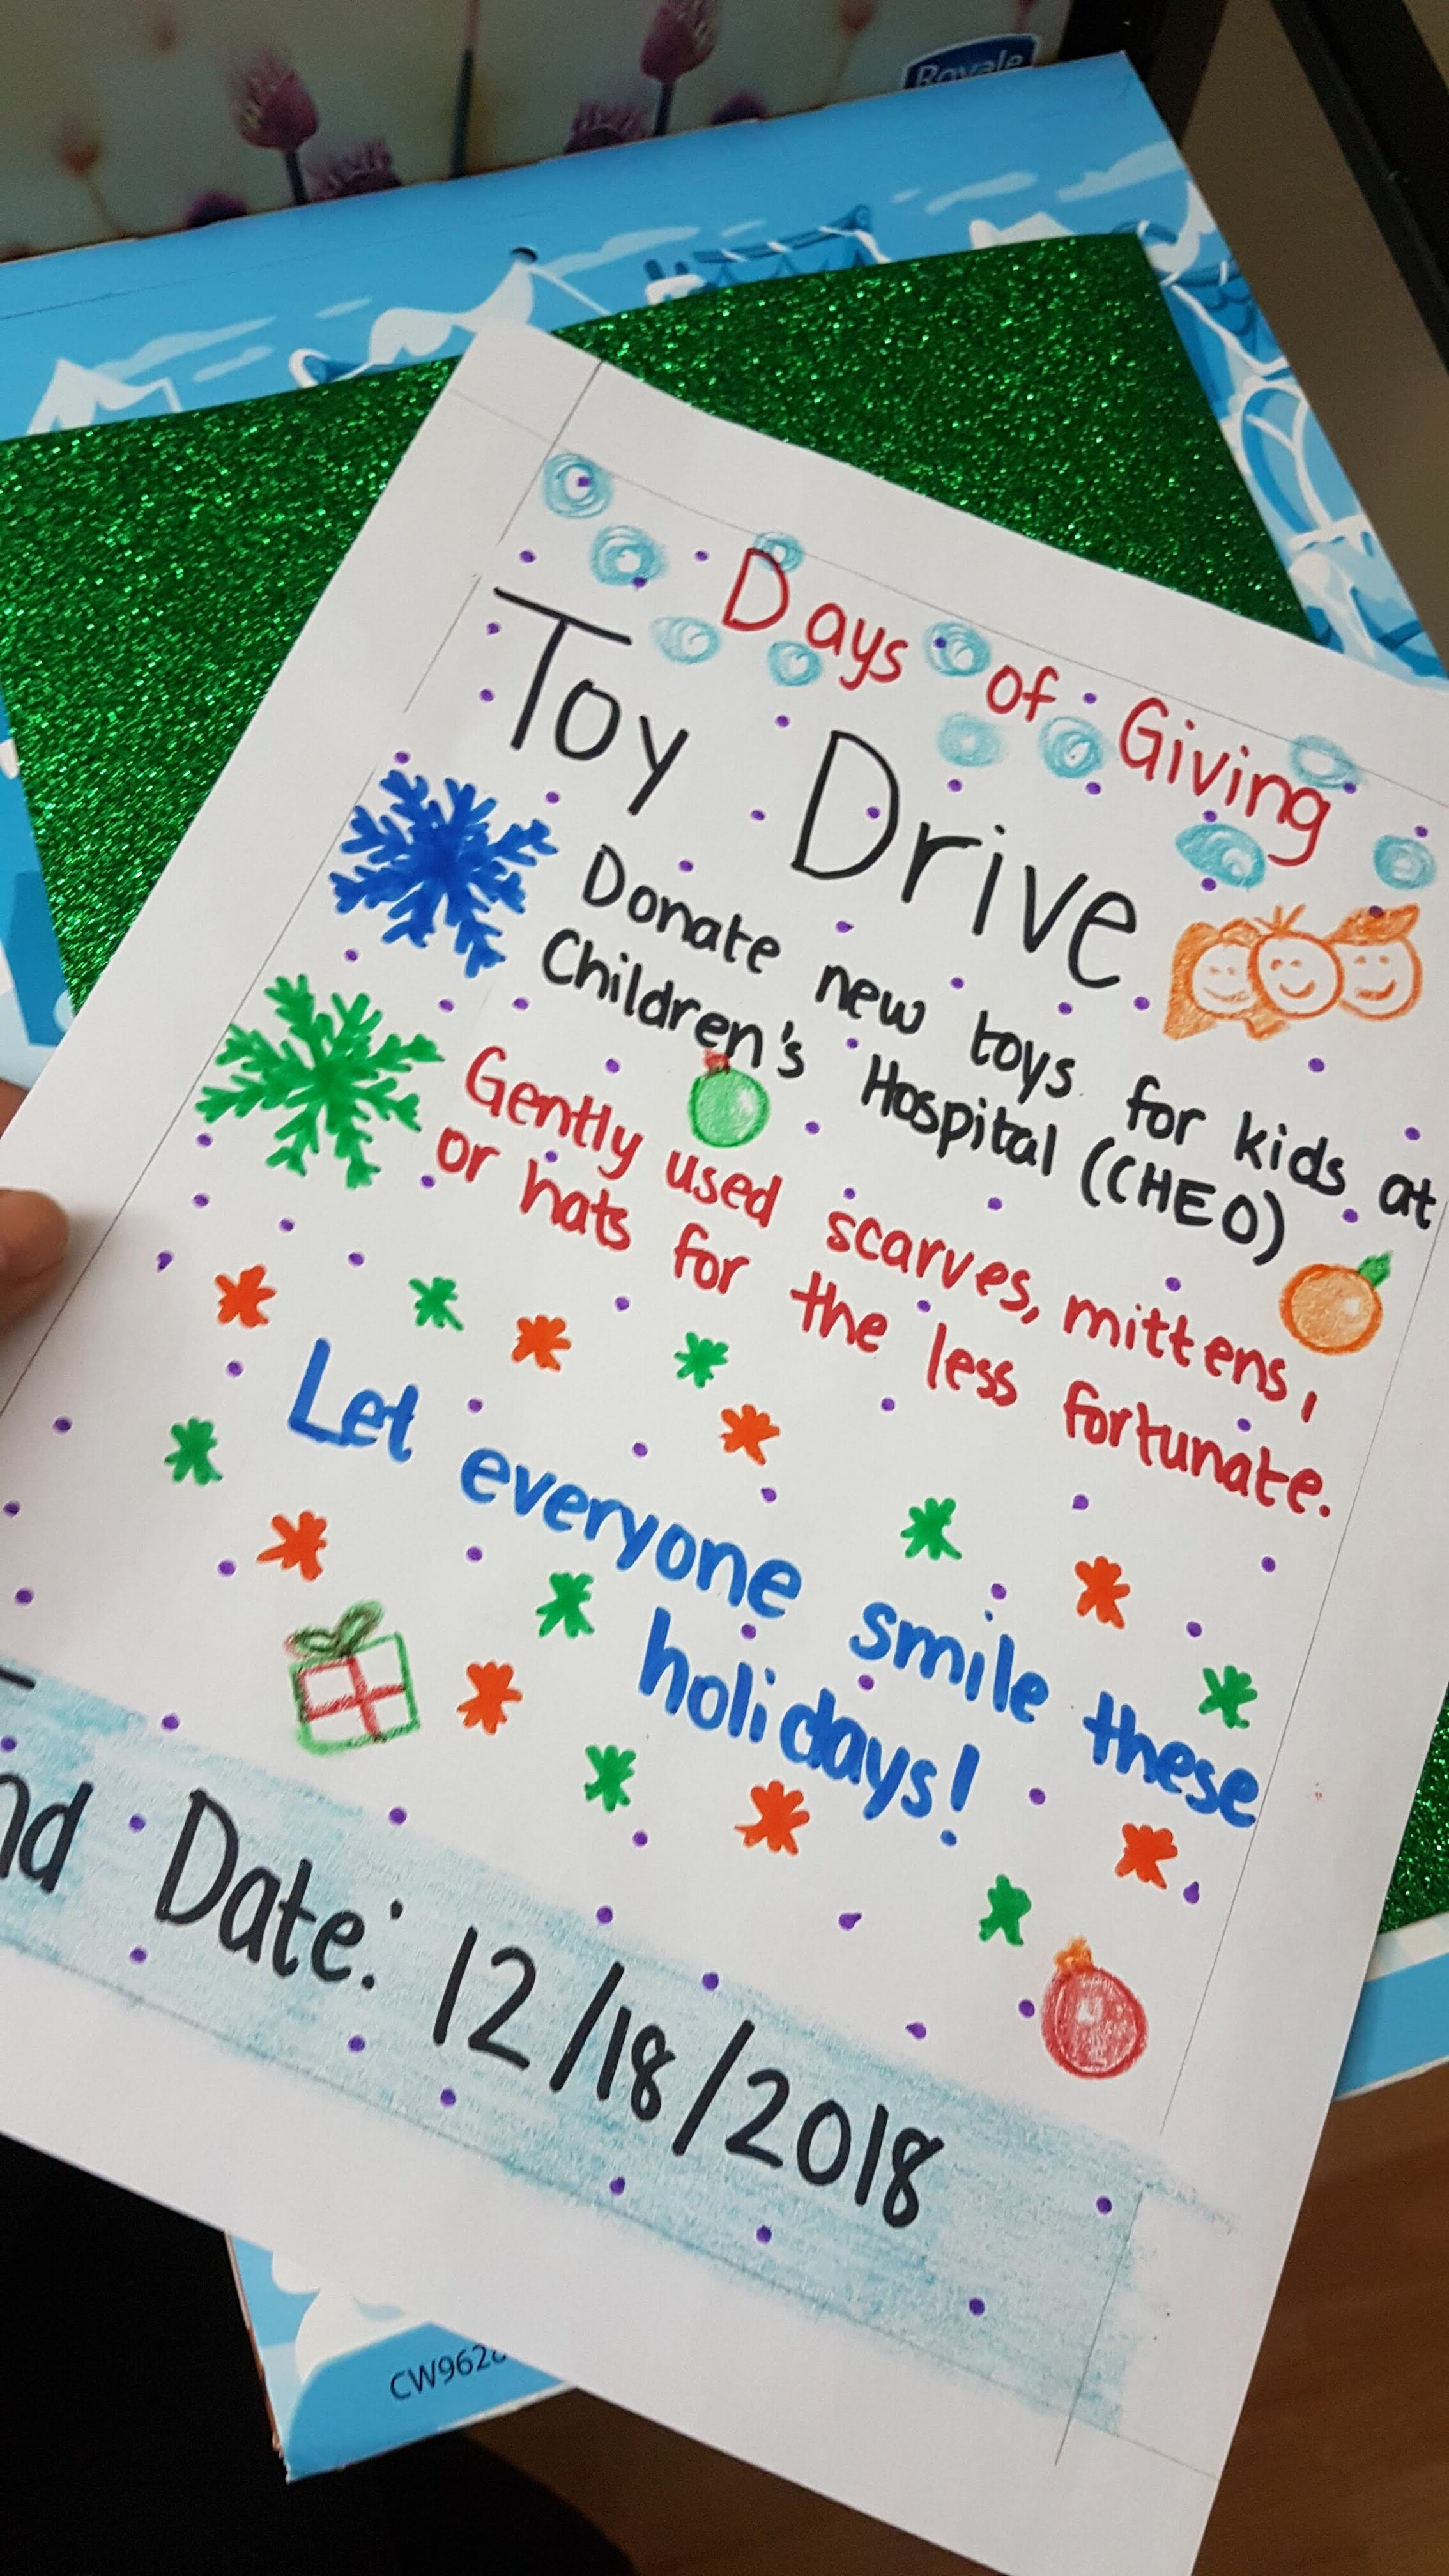 Royale
Days of Giving
Toy Drive
Donate new toys for kids at
Children's Hospital (CHEO)
Gently used scarves, mittens,
or hats for the less fortunate.
Let everyone smile these
holidays!
nd Date: 12/18/2018
CW962